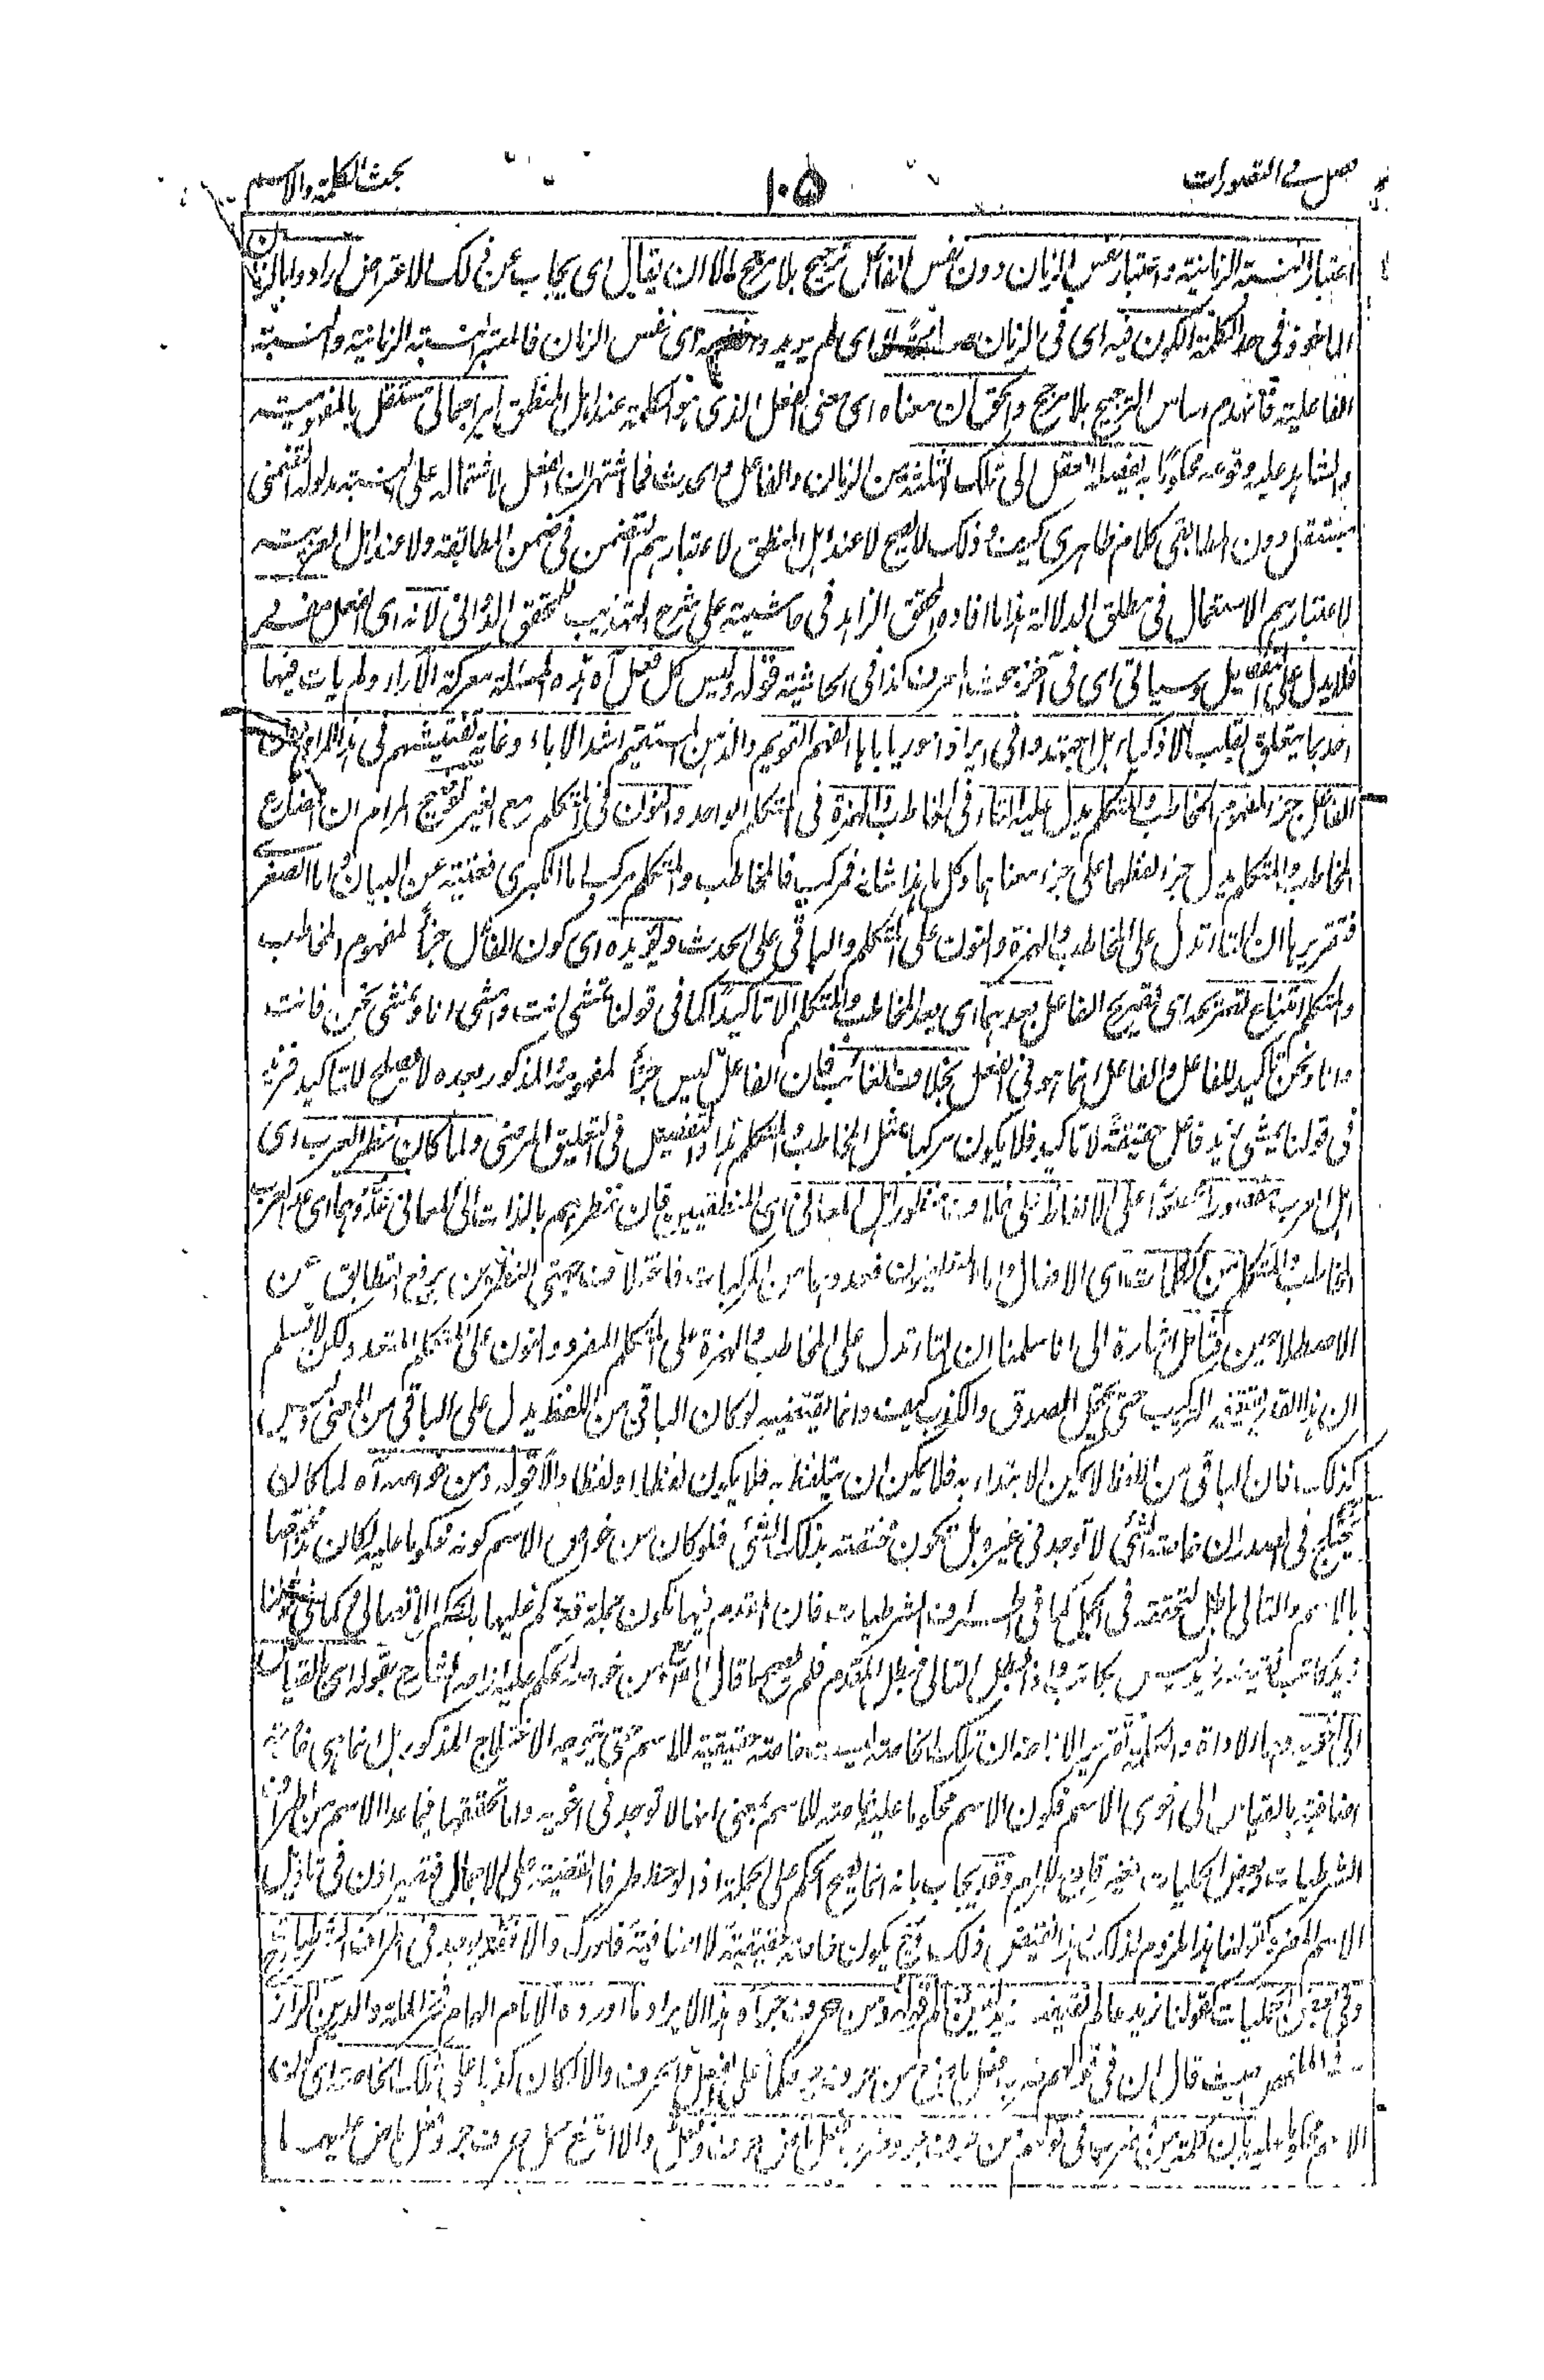 فصل في التصورات
١٠٥
بحث الكلمة والاسم
اعتبار النسبة الزمانية واعتبار نفس الزمان دون نفس الفاعل ترجيح بلا مرجح الا ان يقال اى يجاب عن ذلك الاعتراض اراد وا بالزمان
الماخوذ فى حد الكلمة الكون فيه اى فى الزمان اى لم يريد وا نفسه اى نفس الزمان فالمعتبر النسبة الزمانية والنسبة
الفاعلية فانهدم اساس الترجيح بلا مرجح والحق ان معناه اى معنى الفعل الذى هو الكلمة عند اهل المنطق امر اجمالى مستقل بالمفهومية
والشاهد عليه وقوعه محكوما به يفصله العقل الى تلك الثلثة من الزمان والفاعل والحدث فما اشتهر ان الفعل لاشتماله على النسبة مدلوله التضمنى
مستقل دون المطابقى كلام ظاهرى كيف وذلك لا يصح لا عند اهل المنطق لاعتبارهم التضمن فى ضمن المطابقة ولا عند اهل العربية
لاعتبارهم الاستعمال فى مطلق الدلالة هذا ما افاده المحقق الزاهد فى حاشيته على شرح التهذيب للمحقق الدوانى لانه اى الفعل مفرد
فلا يدل على التفصيل وسياتى اى فى آخر بحث الحرف كذا فى الحاشية قوله وليس كل فعل آه هذه المسئلة معركة الآراء ولم يات فيها
احد بما يتعلق بقلب الاذكياء بل اجتهدوا فى ايراد امور يا باها الفهم القويم والذهن المستقيم اشد الاباء وغاية تفتيشهم فى هذا المرام ان
الفاعل جزء لمفهوم المخاطب والمتكلم يدل عليه التاء فى المخاطب والهمزة فى المتكلم الواحد والنون فى المتكلم مع الغير توضيح المرام ان المضارع
المخاطب والمتكلم يدل جزء لفظهما على جزء معناهما وكل ما هذا شانه فمركب فالمخاطب والمتكلم مركب اما الكبرى فغنية عن البيان واما الصغرى
فتقريرها ان التاء تدل على المخاطب والهمزة والنون على المتكلم والباقى على الحدث ويؤيده اى كون الفاعل جزأ لمفهوم المخاطب
والمتكلم امتناع تصريحه اى تصريح الفاعل بعدهما اى بعد المخاطب والمتكلم الا تاكيدا كما فى قولنا تمشى انت وامشى انا ونمشى نحن فانت
وانا ونحن تاكيد للفاعل والفاعل انما هو فى الفعل بخلاف الغائب فان الفاعل ليس جزأ لمفهومه المذكور بعده لا يصلح للتاكيد فزيد
فى قولنا يمشى زيد فاعل حقيقة لا تاكيد فلا يكون مركبا مثل المخاطب والمتكلم هذا والتفصيل فى التعليق المرضى ولما كان نظر العرب اى
اهل العرب مقصورا على الالفاظ بخلاف منظور اهل المعانى اى المنطقيين فان نظرهم بالذات الى المعانى عدوهما اى عد العرب
المخاطب والمتكلم من الكلمات اى الافعال واما المنطقيون فعدوهما من المركبات فاختلاف جهتى النظرين يرفع التطابق عن
الاصطلاحين فتامل اشارة الى انا سلمنا ان التاء تدل على المخاطب والهمزة على المتكلم المفرد والنون على المتكلم المتعدد ولكن لا نسلم
ان هذا القدر يقتضيه التركيب حتى يحتمل الصدق والكذب كيف وانما يقتضيه لو كان الباقى من اللفظ يدل على الباقى من المعنى وليس
كذلك فان الباقى من اللفظ لا يمكن الابتداء به فلا يمكن ان يتلفظ به فلا يكون لفظا او لفظا دالا قوله ومن خواصه آه لما كان
يختلج فى الصدر ان خاصة الشئ لا توجد فى غيره بل تكون مختصة بذلك الشئ فلو كان من خواص الاسم كونه محكوما عليه لكان مختصا
بالاسم والتالى باطل لتحققه فى الجمل كما فى اطراف الشرطيات فان المقدم فيها يكون جملة قد حكم عليها بالحكم الاتصالى وكما فى قولنا
زيد كاتب نقيضه زيد ليس بكاتب واذا بطل التالى فبطل المقدم فلم يصح ما قال المص من خواصه الحكم عليه ازاحه الشارح بقوله اى بالقياس
الى اخويه وهما الاداة والكلمة تقرير الازاحة ان تلك الخاصة ليست خاصة حقيقية للاسم حتى يتوجه الاختلاج المذكور بل انما هى خاصة
اضافية بالقياس الى اخوى الاسم فكون الاسم محكوما عليه خاصة للاسم بمعنى انها لا توجد فى اخويه واما تحققها فيما عدا الاسم من اطراف
الشرطيات وبعض الحمليات فغير قادح للمرام وقد يجاب بانه انما يصح الحكم على الجملة اذا لوحظ طرفا القضية على الاجمال فتصير اذن فى تاويل
الاسم المفرد كقولنا هذا ملزوم لذلك وهذا نقيض ذلك فح يكون خاصة حقيقية لا اضافية فادرك والا فقد يوجد فى اطراف الشرطيات
وفى بعض الحمليات كقولنا زيد عالم نقيضه زيد ليس بعالم قوله ومن حرف جر آه هذا الايراد ما اورده الامام الهمام فخر الملة والدين الرازى
فى الملخص حيث قال ان فى قولهم ضرب فعل ماض ومن حرف جر حكما على الفعل والحرف والا لكان كذبا على تلك الخاصة اى كون
الاسم محكوما عليه